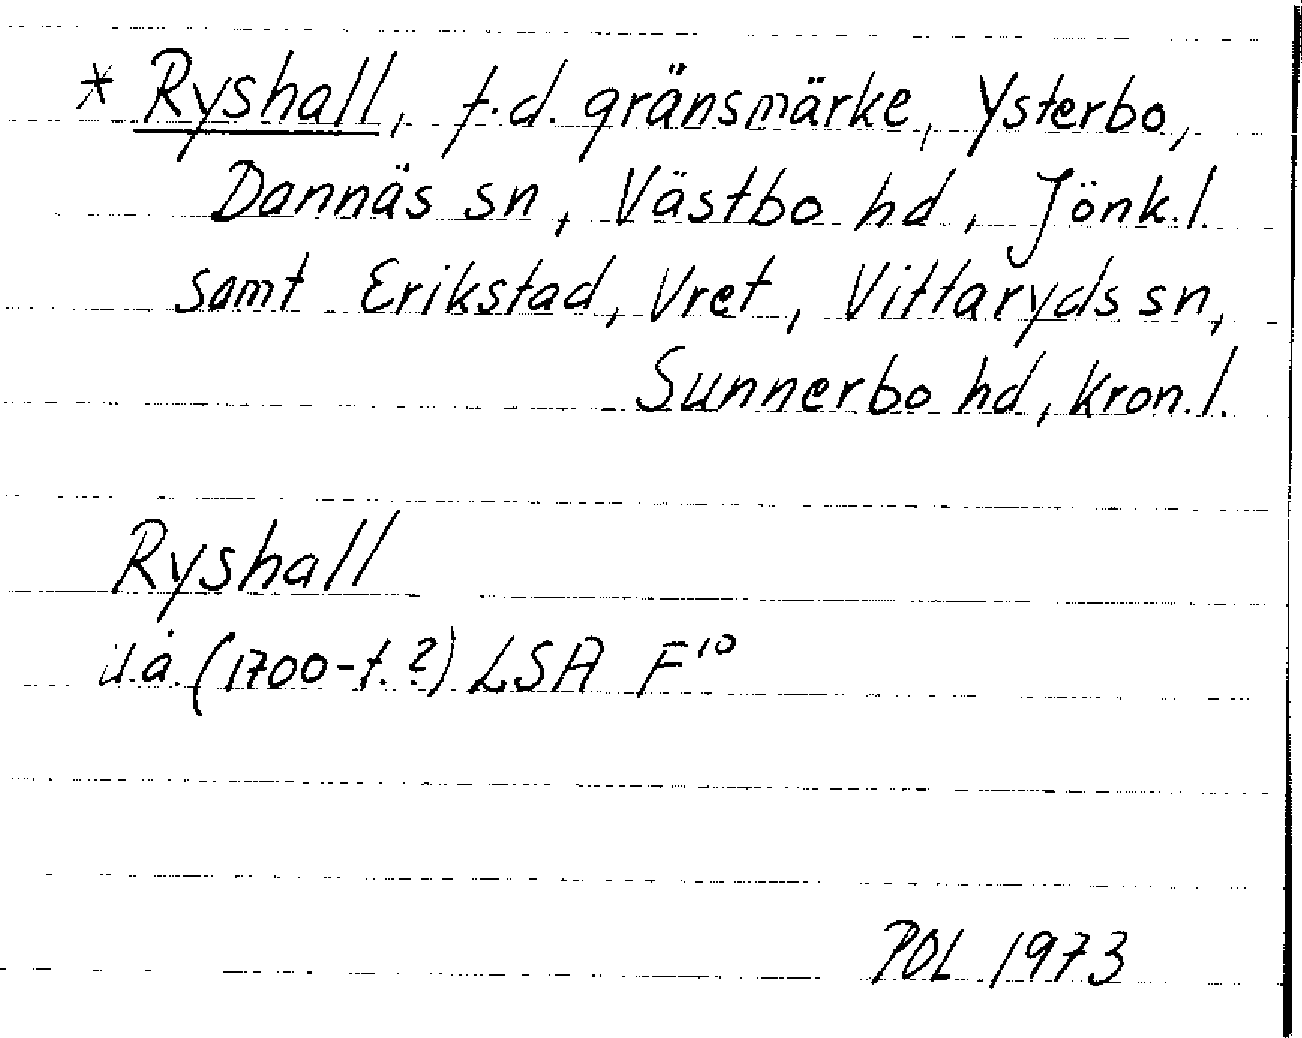 * Ryshall, f.d. gränsmärke, Ysterbo,
Dannäs sn, Västbo hd, Jönk.l.
samt Erikstad, Vret, Vittaryds sn,
Sunnerbo hd, Kron.l.
Ryshall
u.å. (1700-t.?) LSA F¹⁰
POL 1973